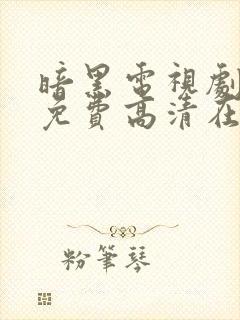 暗黑電視劇
免費高清在
粉筆琴